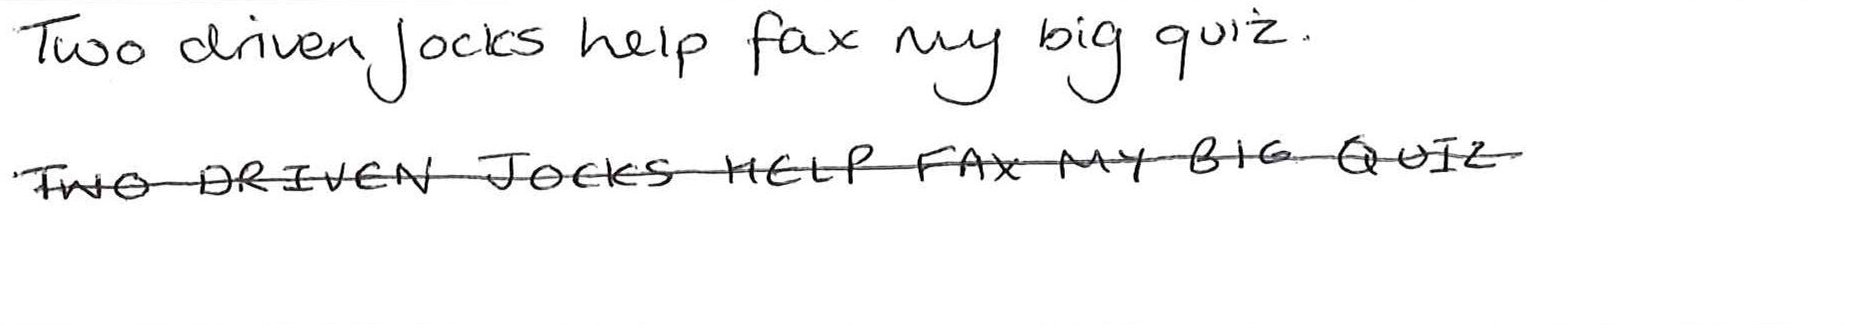 Two driven jocks help fax my big quiz.
TWO DRIVEN JOCKS HELP FAX MY BIG QUIZ